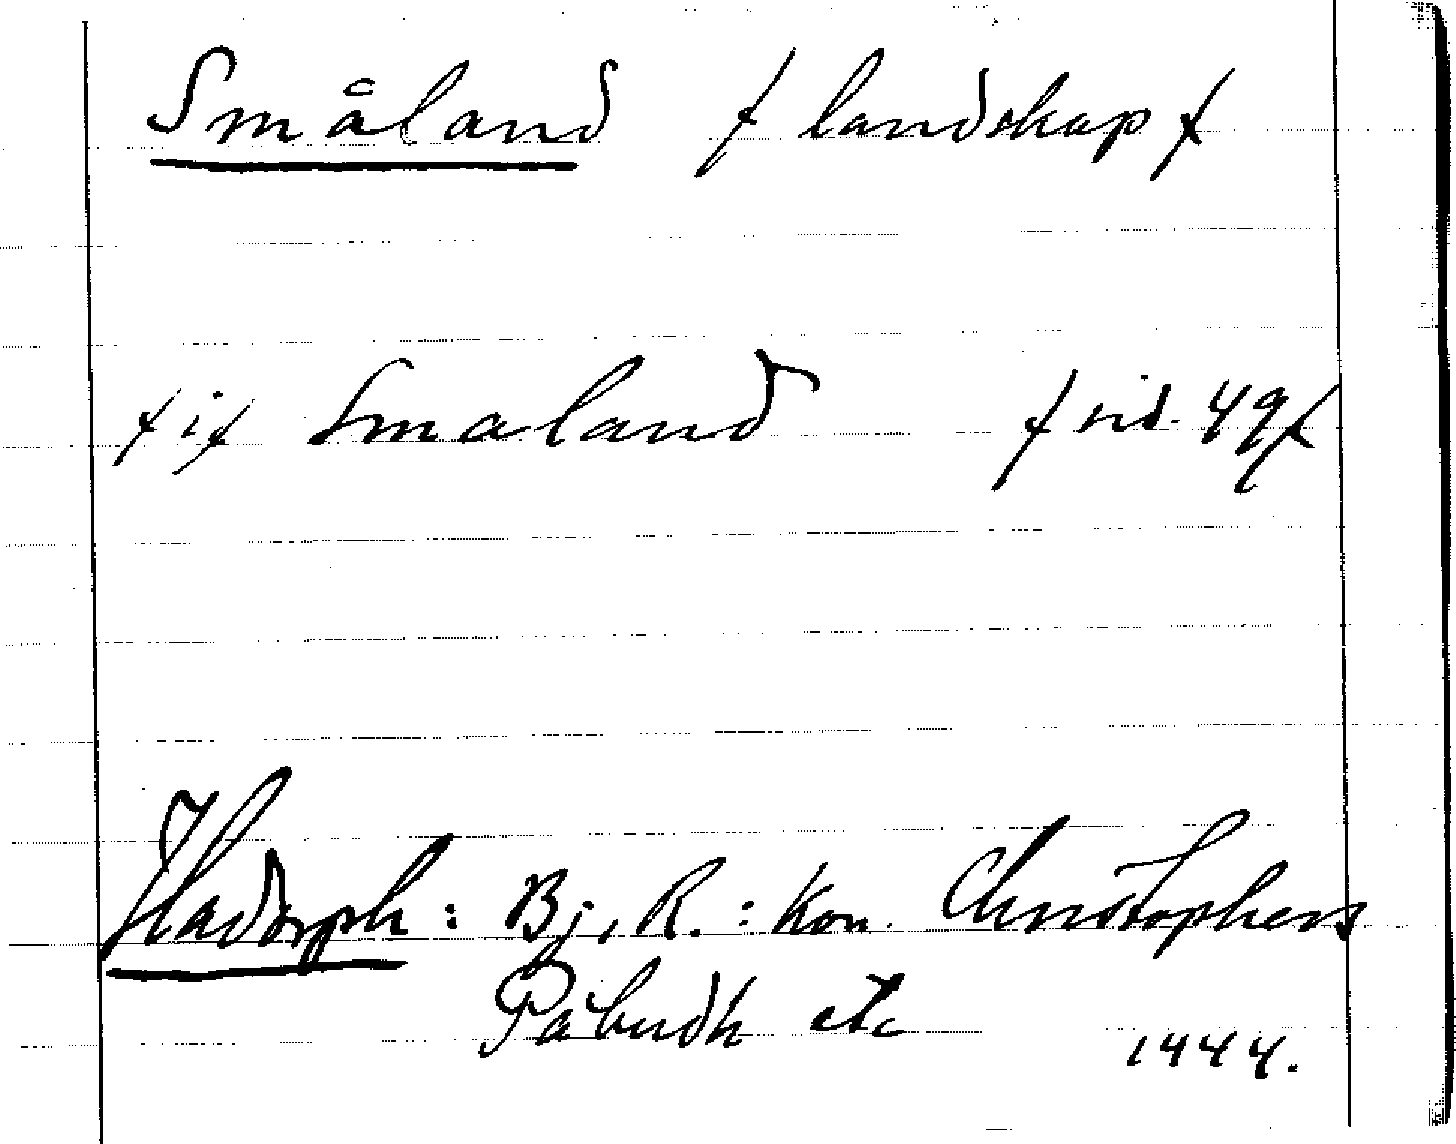 Småland / landskap /
/ i / Smaland / sid. 49 /
Hadorph : Bj. R. : Kon. Christophers
Påbudh etc
1444.